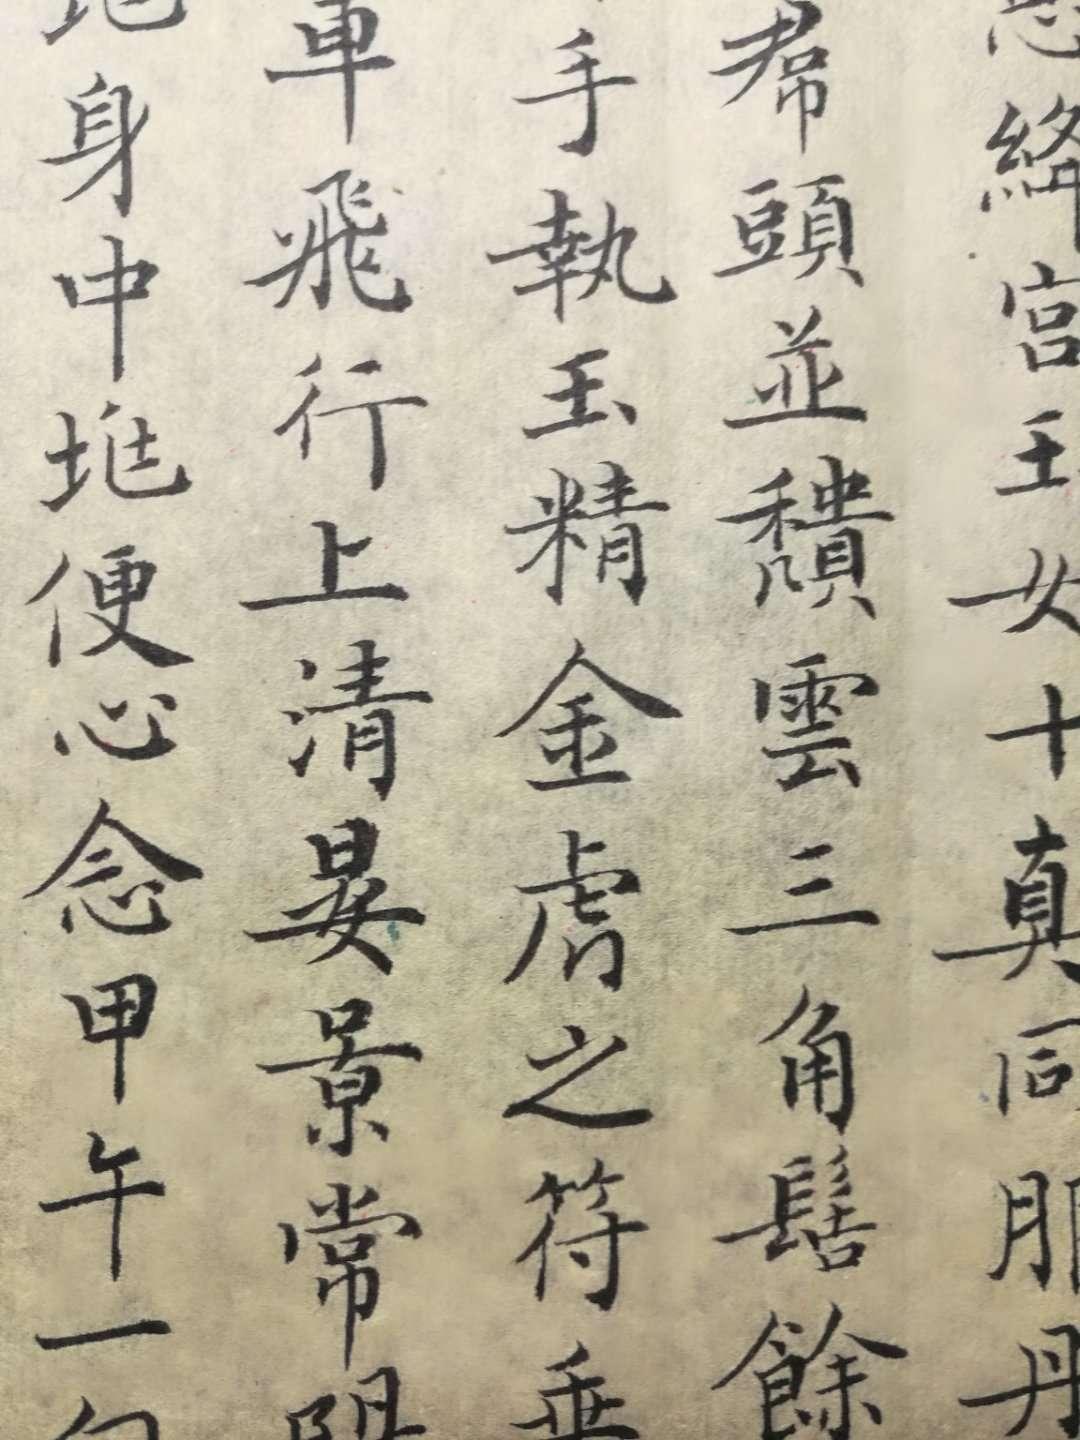 絳宮玉女十真同服丹
帬頭並穨雲三角髻餘
手執玉精金虎之符乘
車飛行上清晏景常陽
身中便心念甲午一旬